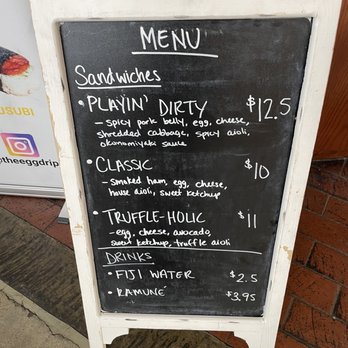 MENU
Sandwiches
• PLAYIN' DIRTY $12.5
– spicy pork belly, egg, cheese,
shredded cabbage, spicy aioli,
okonomiyaki sauce
• CLASSIC $10
– smoked ham, egg, cheese,
house aioli, sweet ketchup
• TRUFFLE-HOLIC $11
– egg, cheese, avocado,
sweet ketchup, truffle aioli
DRINKS
• FIJI WATER $2.5
• RAMUNÉ $3.95
USUBI
@theeggdrip